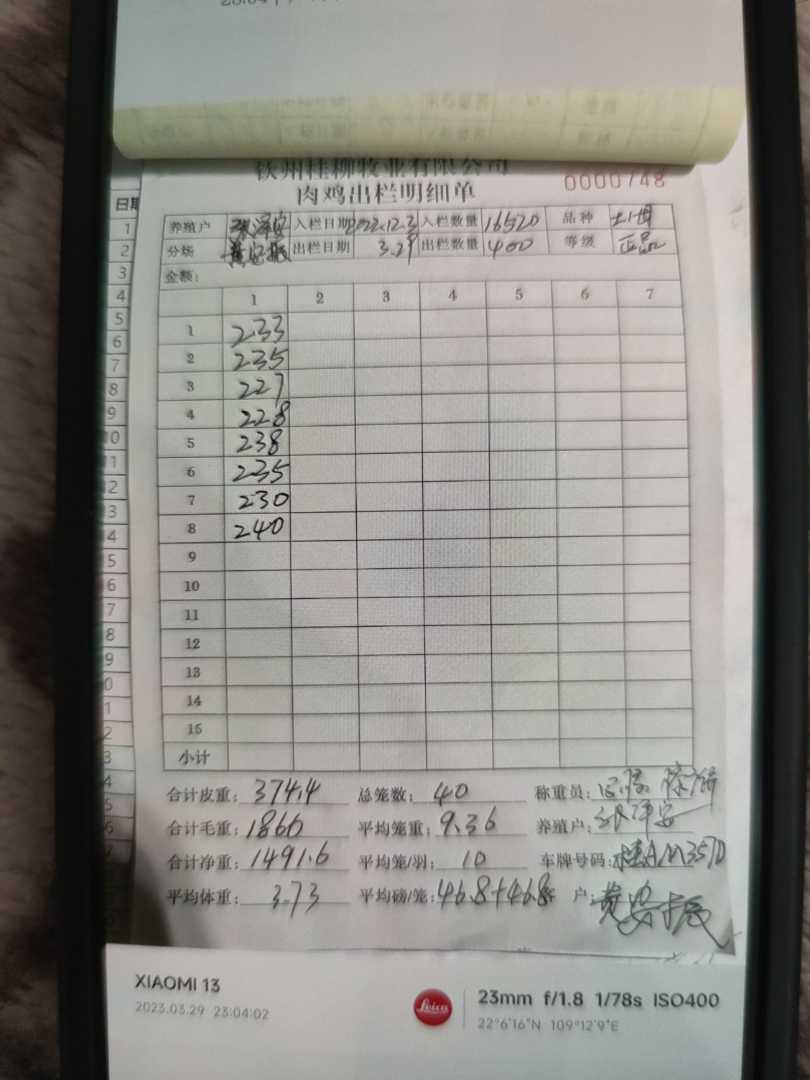 钦州桂柳牧业有限公司
肉鸡出栏明细单
0000748
养殖户 张泽安 入栏日期 2022.12.3 入栏数量 16520 品种 土1号
分场 黄安振 出栏日期 3.29 出栏数量 400 等级 正品
金额:
1 2 3 4 5 6 7
1 233
2 235
3 227
4 228
5 238
6 235
7 230
8 240
9
10
11
12
13
14
15
小计
合计皮重: 374.4 总笼数: 40 称重员:
合计毛重: 1866 平均笼重: 9.36 养殖户:
合计净重: 1491.6 平均笼/羽: 10 车牌号码: 桂AM357D
平均体重: 3.73 平均磅/笼: 46.8+46.8 户: 黄安振
XIAOMI 13
2023.03.29 23:04:02
Leica
23mm f/1.8 1/78s ISO400
22°6'16"N 109°12'9"E